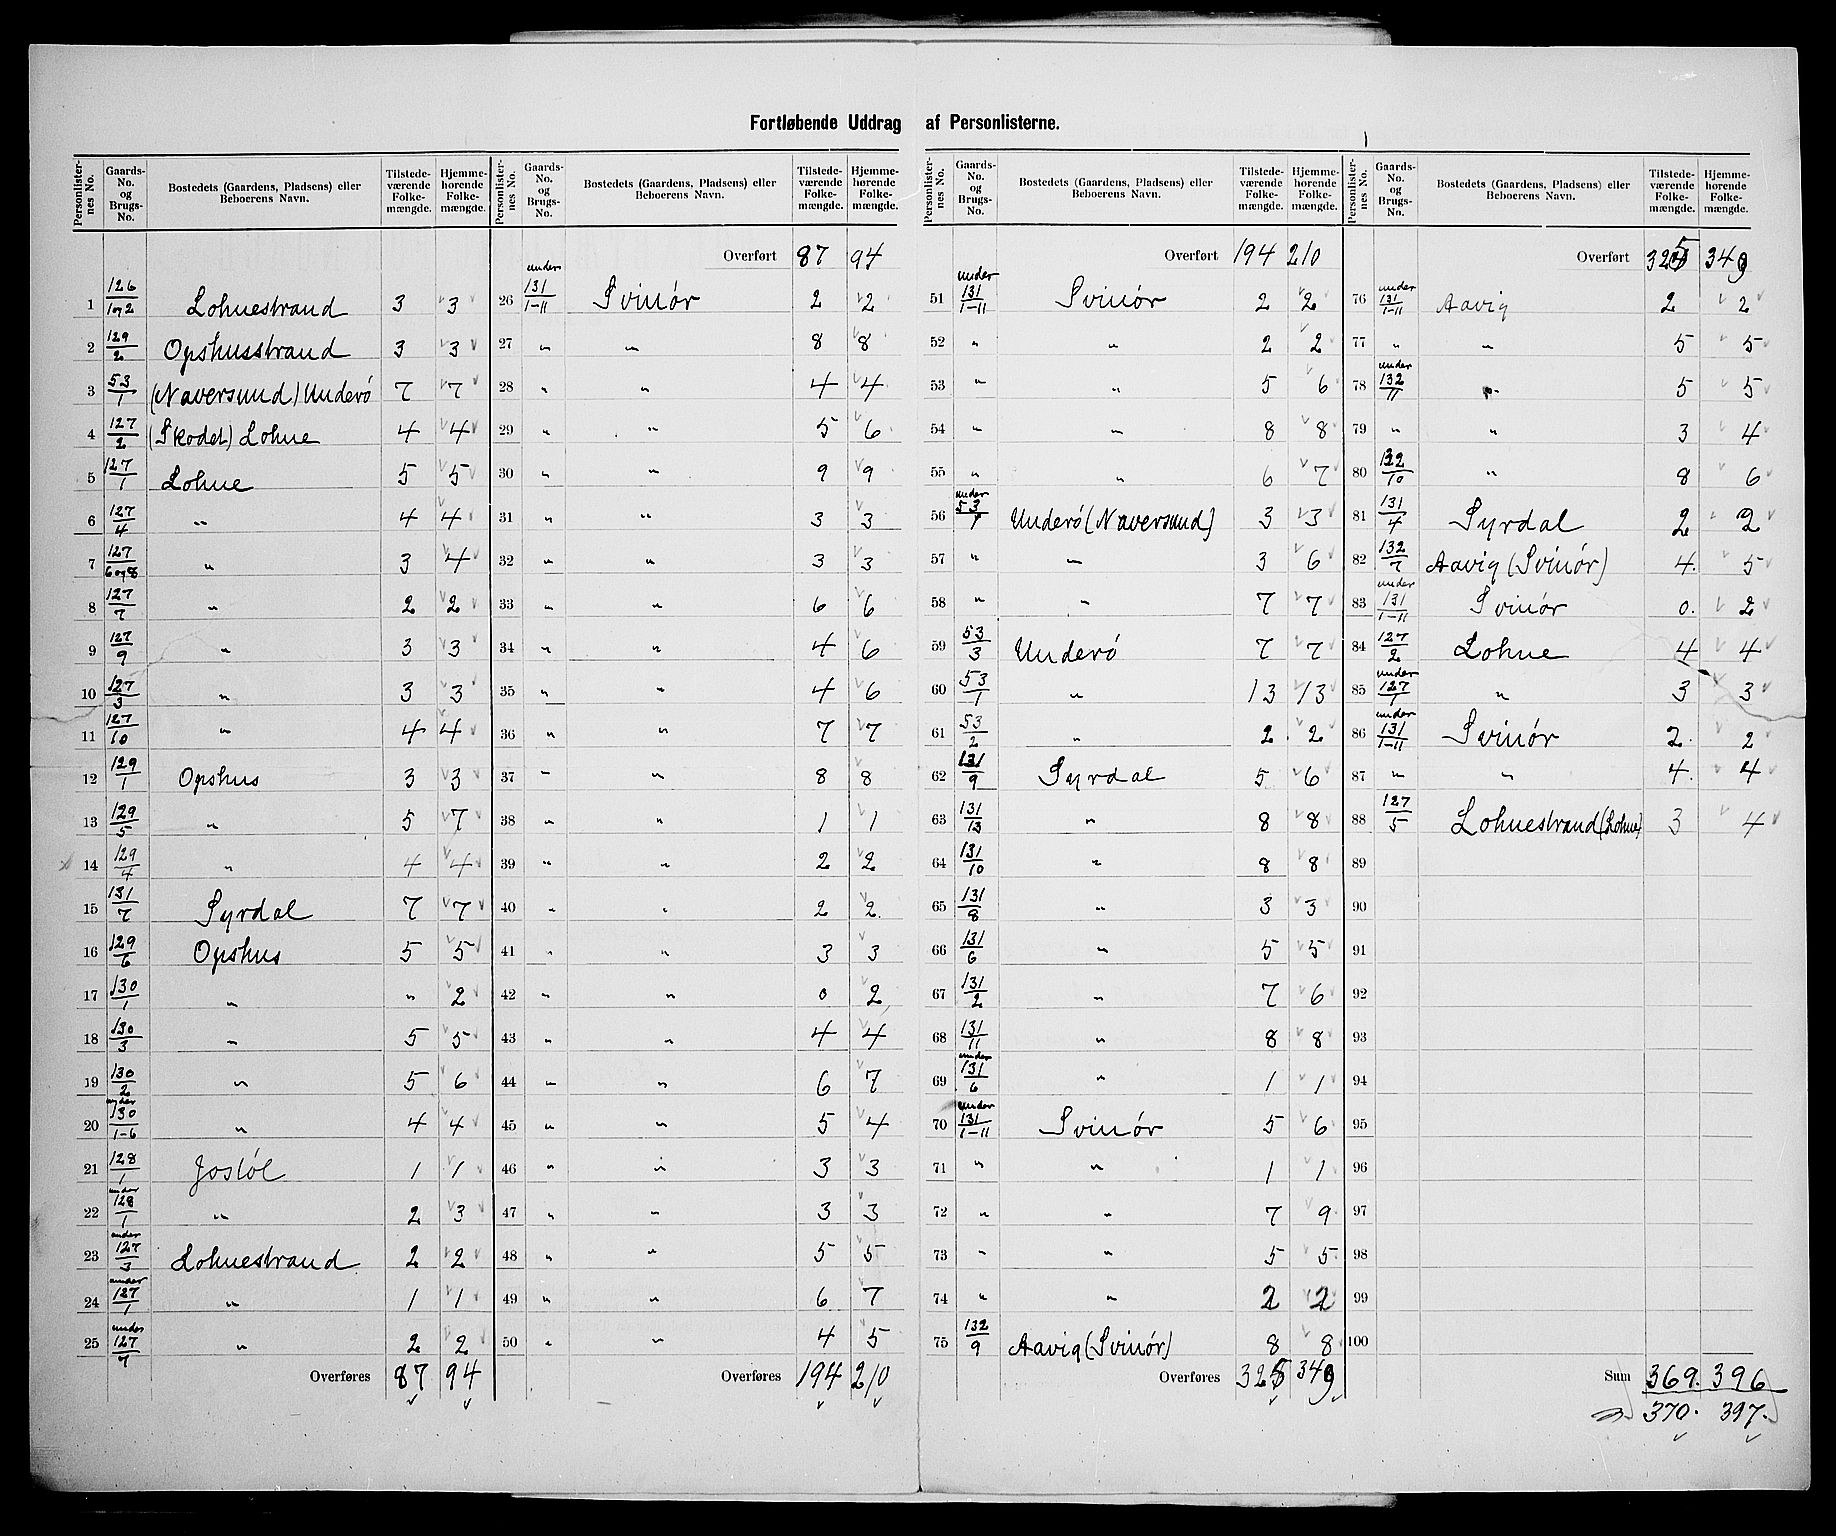 Fortløbende Uddrag af Personlisterne.
Personlister-nes No. | Gaards-No. og Brugs-No. | Bostedets (Gaardens, Pladsens) eller Beboerens Navn. | Tilstede-værende Folke-mængde. | Hjemme-hørende Folke-mængde.
1 126/1og2 Lohnestrand 3 3
2 129/2 Opshusstrand 3 3
3 53/1 (Naversund) Underö 7 7
4 127/2 (Skodet) Lohne 4 4
5 127/1 Lohne 5 5
6 127/4 " 4 4
7 127/6og8 " 3 4
8 127/7 " 2 2
9 127/9 " 3 3
10 127/3 " 3 3
11 127/10 " 4 4
12 129/1 Opshus 3 3
13 129/5 " 5 7
14 129/4 " 4 4
15 131/7 Syrdal 7 7
16 129/6 Opshus 5 5
17 130/1 " " 2
18 130/3 " 5 5
19 130/2 " 5 6
20 under 130/1-6 " 4 4
21 128/1 Josföl 1 1
22 under 128/1 " 2 3
23 under 127/3 Lohnestrand 2 2
24 under 127/1 " 1 1
25 under 127/7 " 2 2
Overføres 87 94
Personlister-nes No. | Gaards-No. og Brugs-No. | Bostedets (Gaardens, Pladsens) eller Beboerens Navn. | Tilstede-værende Folke-mængde. | Hjemme-hørende Folke-mængde.
Overført 87 94
26 under 131/1-11 Svinör 2 2
27 " " 8 8
28 " " 4 4
29 " " 5 6
30 " " 9 9
31 " " 3 3
32 " " 3 3
33 " " 6 6
34 " " 4 6
35 " " 4 6
36 " " 7 7
37 " " 8 8
38 " " 1 1
39 " " 2 2
40 " " 2 2
41 " " 3 3
42 " " 0 2
43 " " 4 4
44 " " 6 7
45 " " 5 4
46 " " 3 3
47 " " 3 3
48 " " 5 5
49 " " 6 7
50 " " 4 5
Overføres 194 210
Personlister-nes No. | Gaards-No. og Brugs-No. | Bostedets (Gaardens, Pladsens) eller Beboerens Navn. | Tilstede-værende Folke-mængde. | Hjemme-hørende Folke-mængde.
Overført 194 210
51 under 131/1-11 Svinör 2 2
52 " " 2 2
53 " " 5 6
54 " " 8 8
55 " " 6 7
56 under 53/1 Underö (Naversund) 3 3
57 " " 3 6
58 " " 7 7
59 53/3 Underö 7 7
60 53/1 " 13 13
61 53/2 " 2 2
62 131/9 Syrdal 5 6
63 131/13 " 8 8
64 131/10 " 8 8
65 131/8 " 3 3
66 131/6 " 5 5
67 131/2 " 7 6
68 131/11 " 8 8
69 under 131/6 " 1 1
70 under 131/1-11 Svinör 5 6
71 " " 1 1
72 " " 7 9
73 " " 5 5
74 " " 2 2
75 132/9 Aavig (Svinör) 8 8
Overføres 325 349
Personlister-nes No. | Gaards-No. og Brugs-No. | Bostedets (Gaardens, Pladsens) eller Beboerens Navn. | Tilstede-værende Folke-mængde. | Hjemme-hørende Folke-mængde.
Overført 325 349
76 under 131/1-11 Aavig 2 2
77 " " 5 5
78 under 132/11 " 5 5
79 " " 3 4
80 132/10 " 8 6
81 131/4 Syrdal 2 2
82 132/7 Aavig (Svinör) 4. 5
83 under 131/1-11 Svinör 0. 2
84 127/2 Lohne 4 4
85 under 127/1 " 3 3
86 under 131/1-11 Svinör 2. 2
87 " " 4. 4
88 127/5 Lohnestrand (Lohne) 3 4
89
90
91
92
93
94
95
96
97
98
99
100
Sum 369. 396
370. 397.